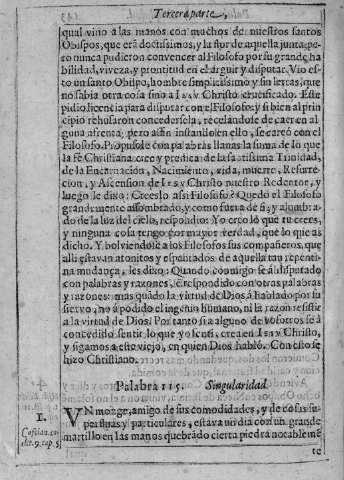 Tercera parte,
qual vino a las manos con muchos de nuestros santos
Obispos, que erã doctissimos, y la flor de aquella junta; pe-
ro nunca pudieron convencer al Filosofo por su grande ha
bilidad, viveza, y prontitud en el arguir y disputar. Vio es-
to un santo Obispo, hombre simplicissimo y sin letras; que
no sabia otra cosa sino a Iesu Christo crucificado. Este
pidio licencia para disputar con el Filosofo; y si bien al prin
cipio rehusaron concedersela, recelandose de caer en al
guna afrenta; pero assi instandolo en ello, se careò con el
Filosofo. Propusole con palabras llanas la suma de lo que
la Fè Christiana cree y predica de la sãtissima Trinidad,
de la Encarnacion, Nacimiento, vida, muerte, Resurre-
cion, y Ascension de Iesu Christo nuestro Redentor, y
luego le dixo: Creeslo assi Filosofo? Quedò el Filosofo
grandemente assombrado, y como fuera de si; y alumbra-
do de la luz del cielo, respondio: Yo creo lo que tu crees,
y ninguna cosa tengo por mayor verdad, que lo que as
dicho. Y bolviendose a los Filosofos sus compañeros, que
alli estavan atonitos y espantados de aquella tan repenti-
na mudança, les dixo: Quando conmigo se à disputado
con palabras y razones, è respondido con otras palabras
y razones: mas quãdo la virtud de Dios à hablado por su
siervo, no à podido el ingenio humano, ni la razon resistir
a la virtud de Dios. Por tanto si a alguno de vosotros se à
concedido sentir lo que yo senti, crea en Iesu Christo,
y sigamos a este viejo, en quien Dios hablò. Con esto se
hizo Christiano.
Palabra 115. Singularidad.
I.
VN monge, amigo de sus comodidades, y de cosas su-
perfluas y particulares, estava un dia con un grande
martillo en las manos quebrãdo cierta piedra notableme
te